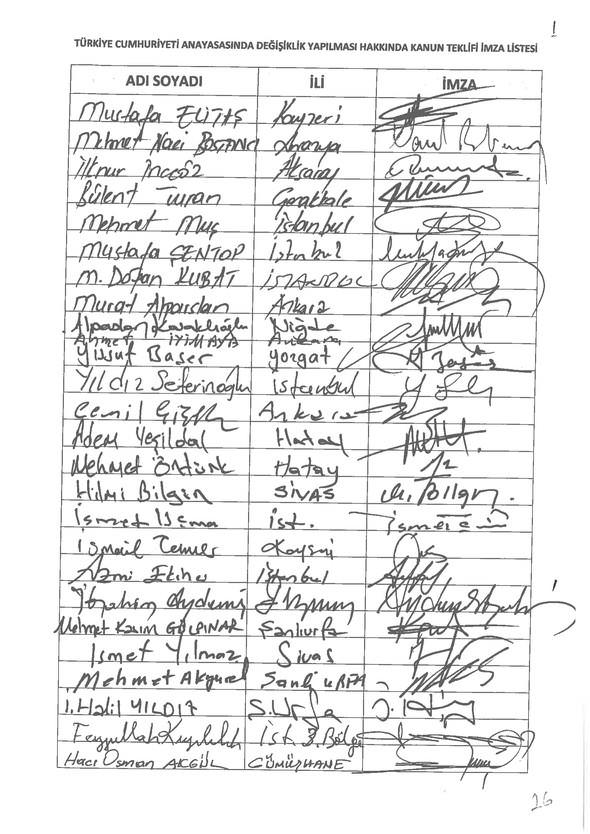 1
TÜRKİYE CUMHURİYETİ ANAYASASINDA DEĞİŞİKLİK YAPILMASI HAKKINDA KANUN TEKLİFİ İMZA LİSTESİ
ADI SOYADI İLİ İMZA
Mustafa ELİTAŞ Kayseri
Mehmet Naci BOSTANCI Amasya
İlknur İnceöz Aksaray
Bülent Turan Çanakkale
Mehmet Muş İstanbul
Mustafa ŞENTOP İstanbul
M. Doğan KUBAT İSTANBUL
Murat Alparslan Ankara
Alpaslan Kavaklıoğlu Niğde
Ahmet İYİMAYA Ankara
Yusuf Başer Yozgat
Yıldız Seferinoğlu İstanbul
Cemil Ankara
Adem Yeşildal Hatay
Mehmet Öntürk Hatay
Hilmi Bilgin SİVAS H. Bilgin.
İsmet Uçma İst.
İsmail Tamer Kayseri
Azmi Ekinci İstanbul
İbrahim Aydemir Erzurum
Mehmet Kasım GÜLPINAR Şanlıurfa
İsmet Yılmaz Sivas
Mehmet Akyürek ŞanlıURFA
İ. Halil YILDIZ Ş. Urfa
Feyzullah Kıyıklık İst 3. Bölge
Hacı Osman AKGÜL GÜMÜŞHANE
26